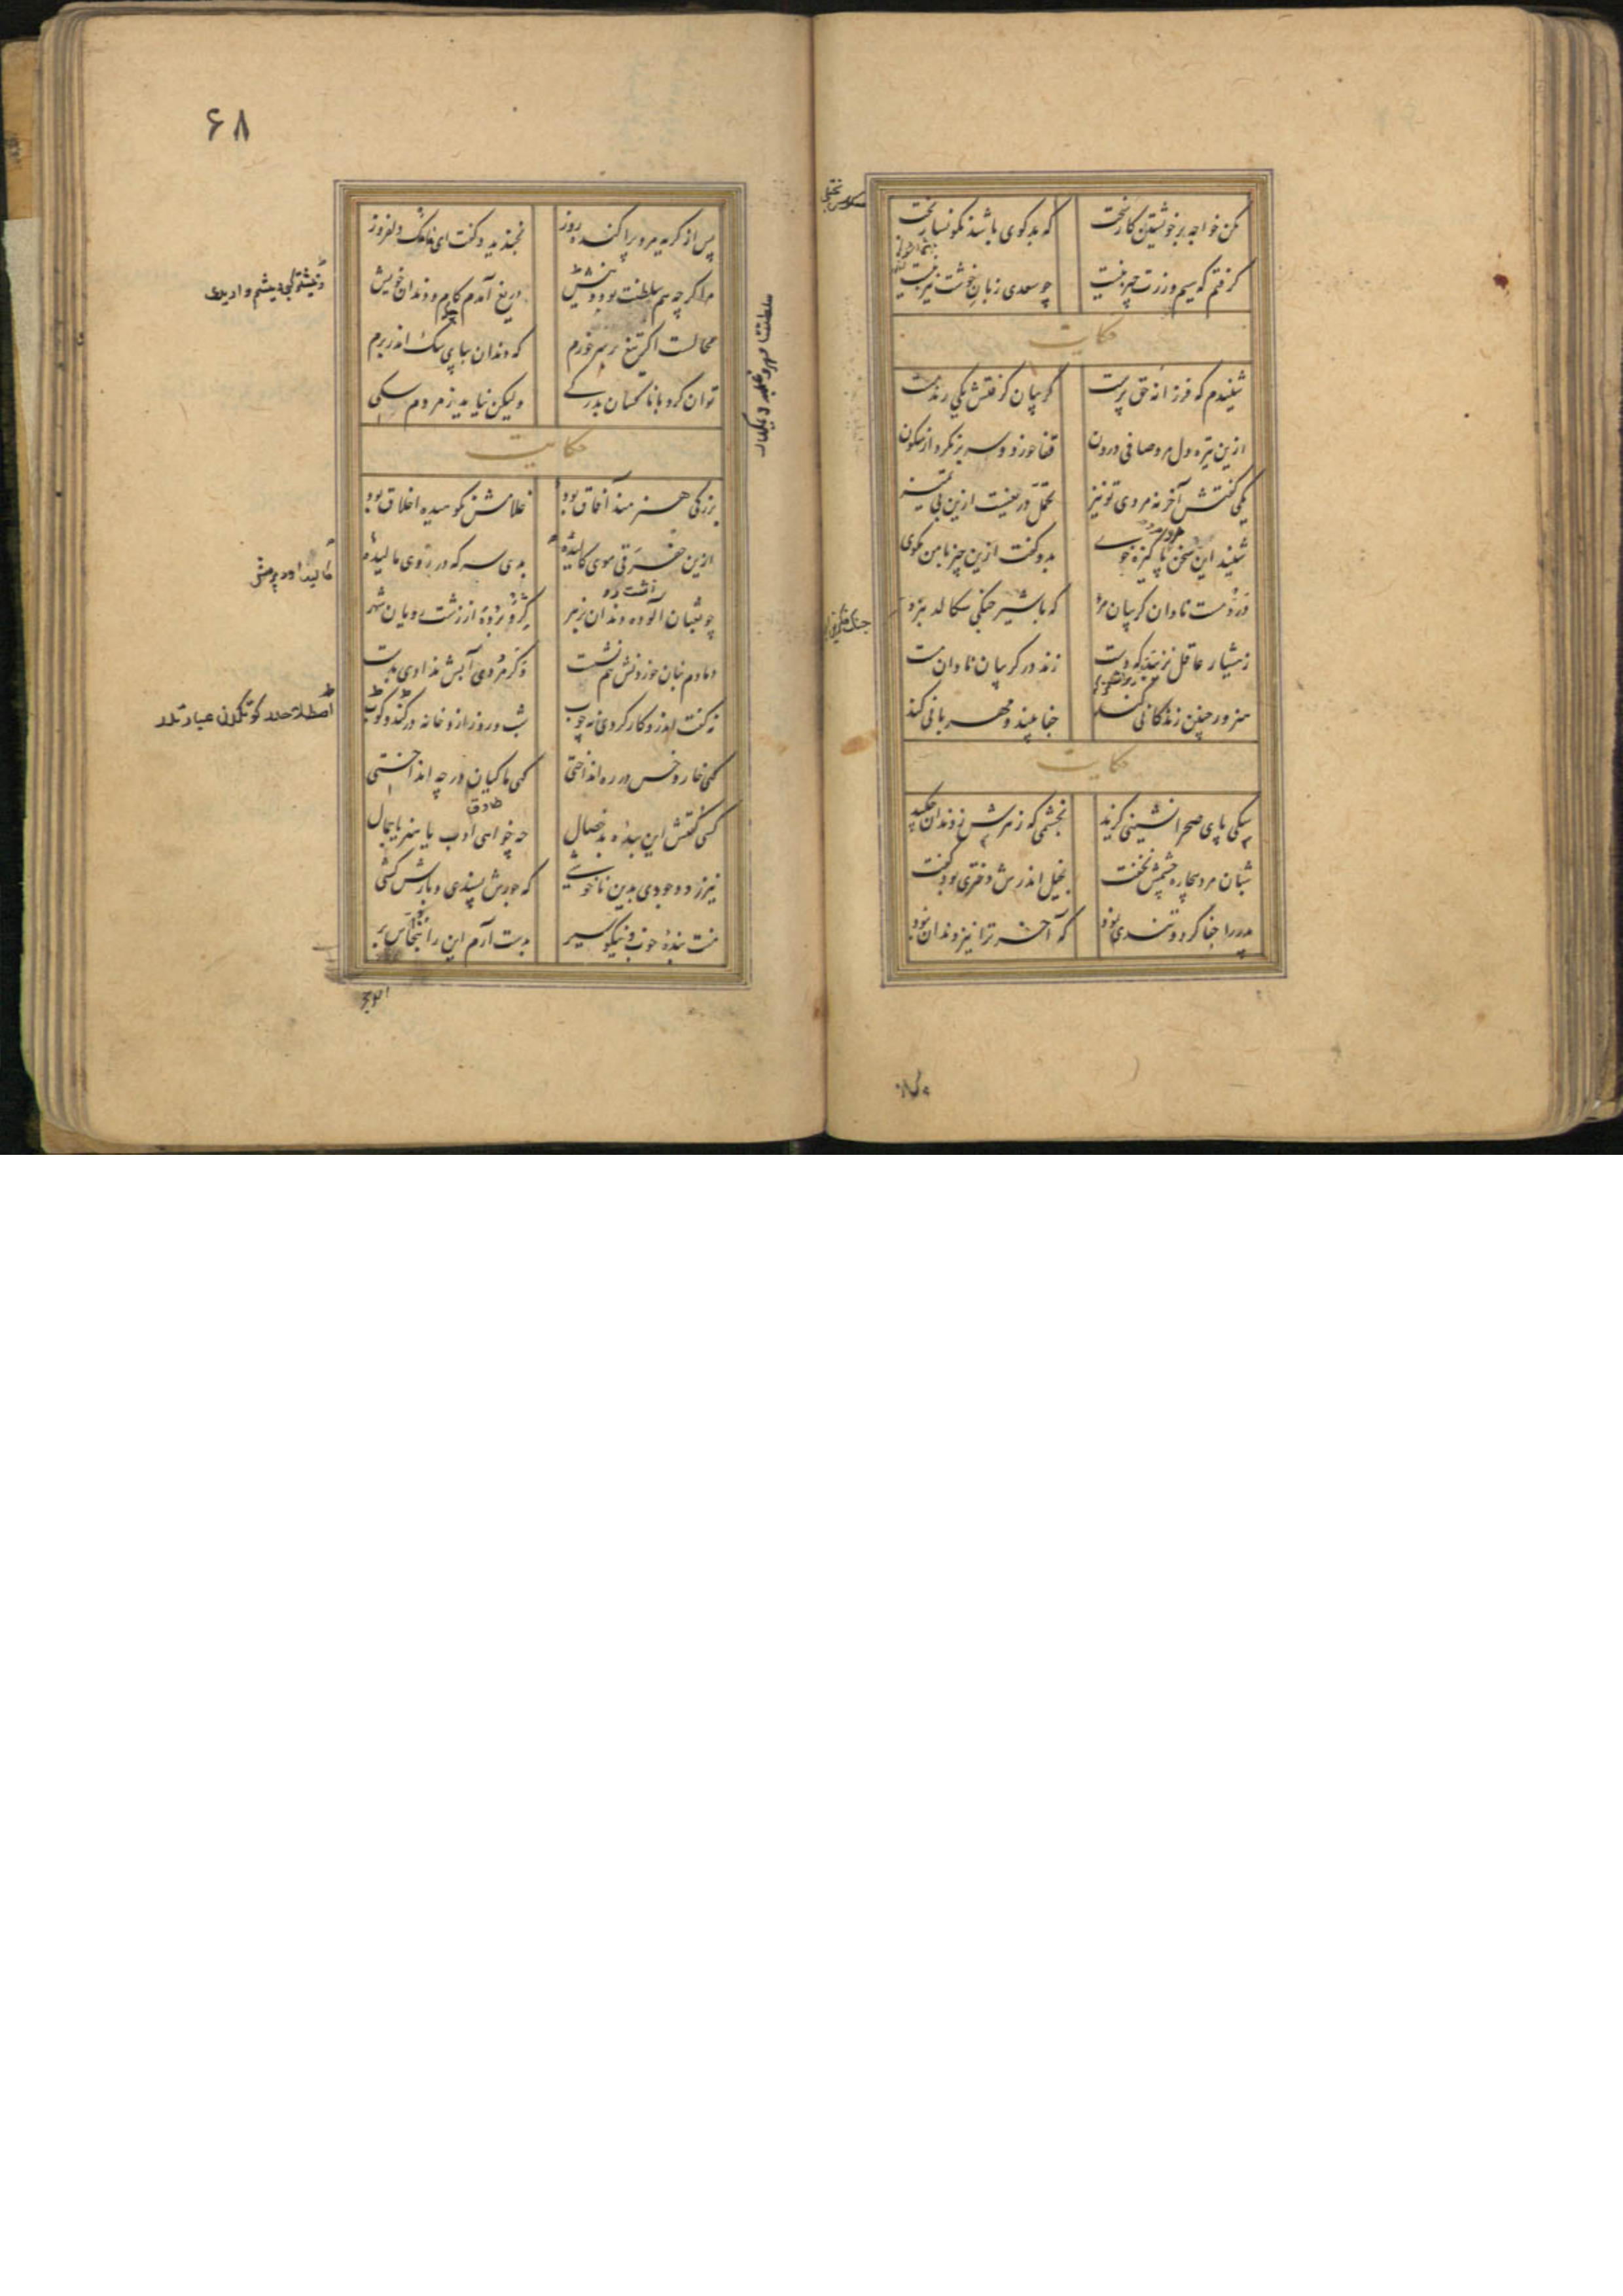 مکن خواجه بر خویشتن کار سخت که بدخوی باشد نگونسار بخت
گرفتم که سیم و زرت چیز نیست چو سعدی زبان خوشت نیز نیست
حکایت
شنیدم که فرزانه حق پرست گریبان گرفتش یکی رند مست
ازین تیره دل مرد صافی درون قفا خورد و سر بر نکرد از سکون
یکی گفتش آخر نه مردی تو نیز تحمل دریغست ازین بی تمیز
شنید این سخن پاکیزه خوی بدو گفت ازین چیز با من مگوی
درد مست نادان گریبان مرد که با شیر جنگی سکالد نبرد
ز هشیار عاقل نزیبد که دست زند در گریبان نادان مست
هنرور چنین زندگانی کند جفا بیند و مهربانی کند
حکایت
سگی پای صحرا نشینی گزید بخشمی که زهرش ز دندان چکید
شبان مرد بیچاره چشمش نخفت بخیل اندرش دختری بود گفت
پدر را جفا کرد و تندی نمود که آخر ترا نیز دندان نبود
۶۸
پس از گریه مرد پراکنده روز بخندید و گفت ای مامک دلفروز
مرا گر چه هم سلطنت بود و نیش دریغ آمدم کام و دندان خویش
محالست اگر تیغ بر سر خورم که دندان بپای سگ اندر برم
توان کرد با ناکسان بدرگی ولیکن نیاید ز مردم سگی
حکایت
بزرگی هنرمند آفاق بود غلامش نکوهیده اخلاق بود
ازین خفرقی موی کالیده بدی سرکه در روی مالیده
چو ثعبان آلوده دندان بزهر گرو برده از زشت رویان شهر
دمادم بنان خوردنش هم نشست و گر مردی آبش ندادی بدست
نه گفت اندرو کار کردی نه چوب شب و روز ازو خانه در کند و کوب
گهی خار و خس در ره انداختی گهی ماکیان در چه انداختی
کسی گفتش این بنده بد خصال چه خواهی ادب یا هنر یا جمال
نیرزد وجودی بدین ناخوشی که جورش پسندی و بارش کشی
منت بنده خوب و نیکو سیر بدست آرم این را بنخاس بر